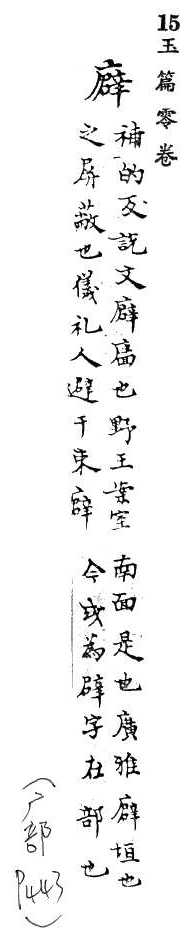 15玉篇零卷
廦
補的反説文廦廧也野王案室
之屏蔽也儀礼人避于東廦
南面是也廣雅廦垣也
今或為壁字在部也
(广部P443)